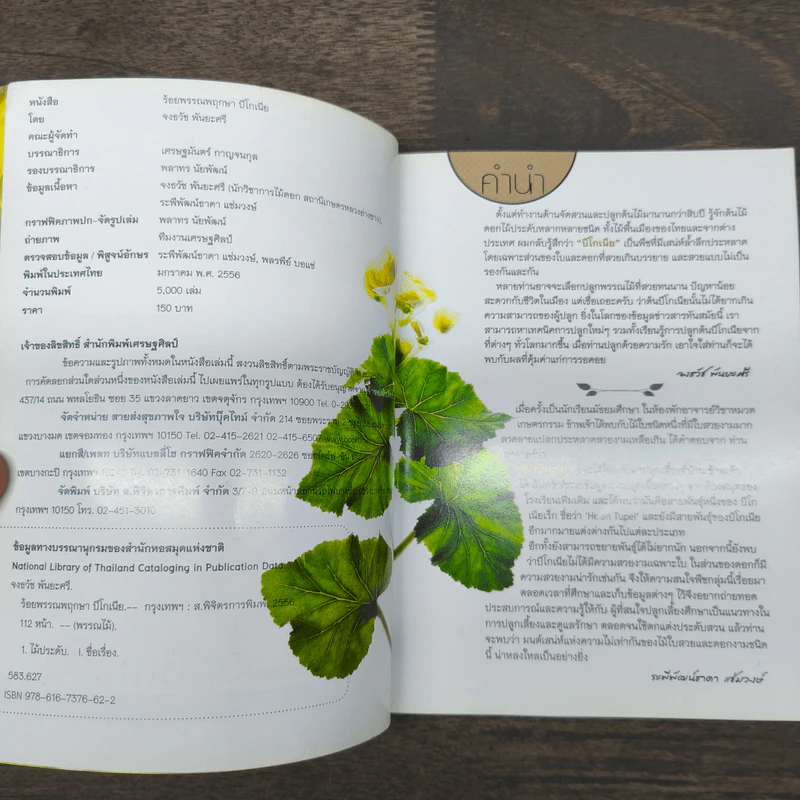 หนังสือ ร้อยพรรณพฤกษา บีโกเนีย
โดย จงธวัช พันยะศรี
คณะผู้จัดทำ
บรรณาธิการ เศรษฐมันตร์ กาญจนกุล
รองบรรณาธิการ พลาทร นัยพัฒน์
ข้อมูลเนื้อหา จงธวัช พันยะศรี (นักวิชาการไม้ดอก สถานีเกษตรหลวงอ่างขาง),
ระพีพัฒน์ธาดา แซ่มวงษ์
กราฟฟิคภาพปก-จัดรูปเล่ม พลาทร นัยพัฒน์
ถ่ายภาพ ทีมงานเศรษฐศิลป์
ตรวจสอบข้อมูล / พิสูจน์อักษร ระพีพัฒน์ธาดา แซ่มวงษ์, พลรพีย์ บอแซ่
พิมพ์ในประเทศไทย มกราคม พ.ศ. 2556
จำนวนพิมพ์ 5,000 เล่ม
ราคา 150 บาท
เจ้าของลิขสิทธิ์ สำนักพิมพ์เศรษฐศิลป์
ข้อความและรูปภาพทั้งหมดในหนังสือเล่มนี้ สงวนลิขสิทธิ์ตามพระราชบัญญัติ
การคัดลอกส่วนใดส่วนหนึ่งของหนังสือเล่มนี้ ไปเผยแพร่ในทุกรูปแบบ ต้องได้รับอนุญาต
437/14 ถนน พหลโยธิน ซอย 35 แขวงลาดยาว เขตจตุจักร กรุงเทพฯ 10900 Tel.
จัดจำหน่าย สายส่งสุขภาพใจ บริษัทบุ๊คไทม์ จำกัด 214 ซอยพระรา
แขวงบางมด เขตจอมทอง กรุงเทพฯ 10150 Tel. 02-415-2621 02-415-6507
แยกสี/เพลท บริษัทแบสลี่โฮ กราฟฟิคจำกัด 2620-2626
เขตบางกะปิ กรุงเทพฯ 10240 Tel. 02-731-1640 Fax 02-731-1132
จัดพิมพ์ บริษัท ส.พิจิตรการพิมพ์ จำกัด
กรุงเทพฯ 10150 โทร. 02-451-3010
ข้อมูลทางบรรณานุกรมของสำนักหอสมุดแห่งชาติ
National Library of Thailand Cataloging in Publication Data
จงธวัช พันยะศรี.
ร้อยพรรณพฤกษา บีโกเนีย.-- กรุงเทพฯ : ส.พิจิตรการพิมพ์, 2556.
112 หน้า. -- (พรรณไม้).
1. ไม้ประดับ. I. ชื่อเรื่อง.
583.627
ISBN 978-616-7376-62-2
คำนำ
ตั้งแต่ทำงานด้านจัดสวนและปลูกต้นไม้มานานกว่าสิบปี รู้จักต้นไม้
ดอกไม้ประดับหลากหลายชนิด ทั้งไม้พื้นเมืองของไทยและจากต่าง
ประเทศ ผมกลับรู้สึกว่า "บีโกเนีย" เป็นพืชที่มีเสน่ห์ล้ำลึกประหลาด
โดยเฉพาะส่วนของใบและดอกที่สวยเกินบรรยาย และสวยแบบไม่เป็น
รองกันและกัน
หลายท่านอาจจะเลือกปลูกพรรณไม้ที่สวยทนนาน ปัญหาน้อย
สะดวกกับชีวิตในเมือง แต่เชื่อเถอะครับ ว่าต้นบีโกเนียนั้นไม่ได้ยากเกิน
ความสามารถของผู้ปลูก ยิ่งในโลกของข้อมูลข่าวสารทันสมัยนี้ เรา
สามารถหาเทคนิคการปลูกใหม่ๆ รวมทั้งเรียนรู้การปลูกต้นบีโกเนียจาก
ที่ต่างๆ ทั่วโลกมากขึ้น เมื่อท่านปลูกด้วยความรัก เอาใจใส่ท่านก็จะได้
พบกับผลที่คุ้มค่าแก่การรอคอย
จงธวัช พันยะศรี
เมื่อครั้งเป็นนักเรียนมัธยมศึกษา ในห้องพักอาจารย์วิชาหมวด
เกษตรกรรม ข้าพเจ้าได้พบกับไม้ใบชนิดหนึ่งที่มีใบสวยงามมาก
ลวดลายแปลกประหลาดสวยงามเหลือเกิน ได้คำตอบจาก ท่าน
โรงเรียนเดิมเติม และได้พบว่ามันคือสายพันธุ์หนึ่งของ บีโก
เนียเร็ก ชื่อว่า "Helen Tupel" และยังมีสายพันธุ์ของบีโกเนีย
อีกมากมายแตกต่างกันไปแต่ละประเภท
อีกทั้งยังสามารถขยายพันธุ์ได้ไม่ยากนัก นอกจากนี้ยังพบ
ว่าบีโกเนียไม่ได้มีความสวยงามเฉพาะใบ ในส่วนของดอกก็มี
ความสวยงามน่ารักเช่นกัน จึงให้ความสนใจพืชกลุ่มนี้เรื่อยมา
ตลอดเวลาที่ศึกษาและเก็บข้อมูลต่างๆ ไว้จึงอยากถ่ายทอด
ประสบการณ์และความรู้ให้กับ ผู้ที่สนใจปลูกเลี้ยงศึกษาเป็นแนวทางใน
การปลูกเลี้ยงและดูแลรักษา ตลอดจนใช้ตกแต่งประดับสวน แล้วท่าน
จะพบว่า มนต์เสน่ห์แห่งความไม่เท่ากันของไม้ใบสวยและดอกงามชนิด
นี้ น่าหลงใหลเป็นอย่างยิ่ง
ระพีพัฒน์ธาดา แซ่มวงษ์